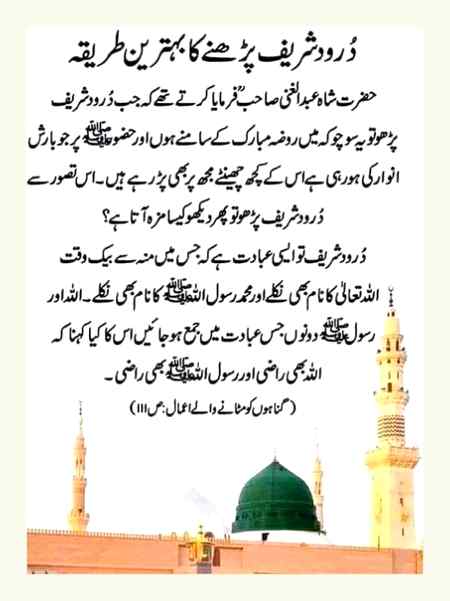 دُرود شریف پڑھنے کا بہترین طریقہ
حضرت شاہ عبدالغنی صاحبؒ فرمایا کرتے تھے کہ جب دُرود شریف
پڑھو تو یہ سوچو کہ میں روضہ مبارک کے سامنے ہوں اور حضور ﷺ پر جو بارش
انوار کی ہو رہی ہے اس کے کچھ چھینٹے مجھ پر بھی پڑ رہے ہیں۔ اس تصور سے
دُرود شریف پڑھو تو پھر دیکھو کیسا مزہ آتا ہے؟
دُرود شریف تو ایسی عبادت ہے کہ جس میں منہ سے بیک وقت
اللہ تعالیٰ کا نام بھی نکلے اور محمد رسول اللہ ﷺ کا نام بھی نکلے۔ اللہ اور
رسول ﷺ دونوں جس عبادت میں جمع ہو جائیں اس کا کیا کہنا کہ
اللہ بھی راضی اور رسول اللہ ﷺ بھی راضی ۔
(گناہوں کو مٹانے والے اعمال: ص ۱۱۱)